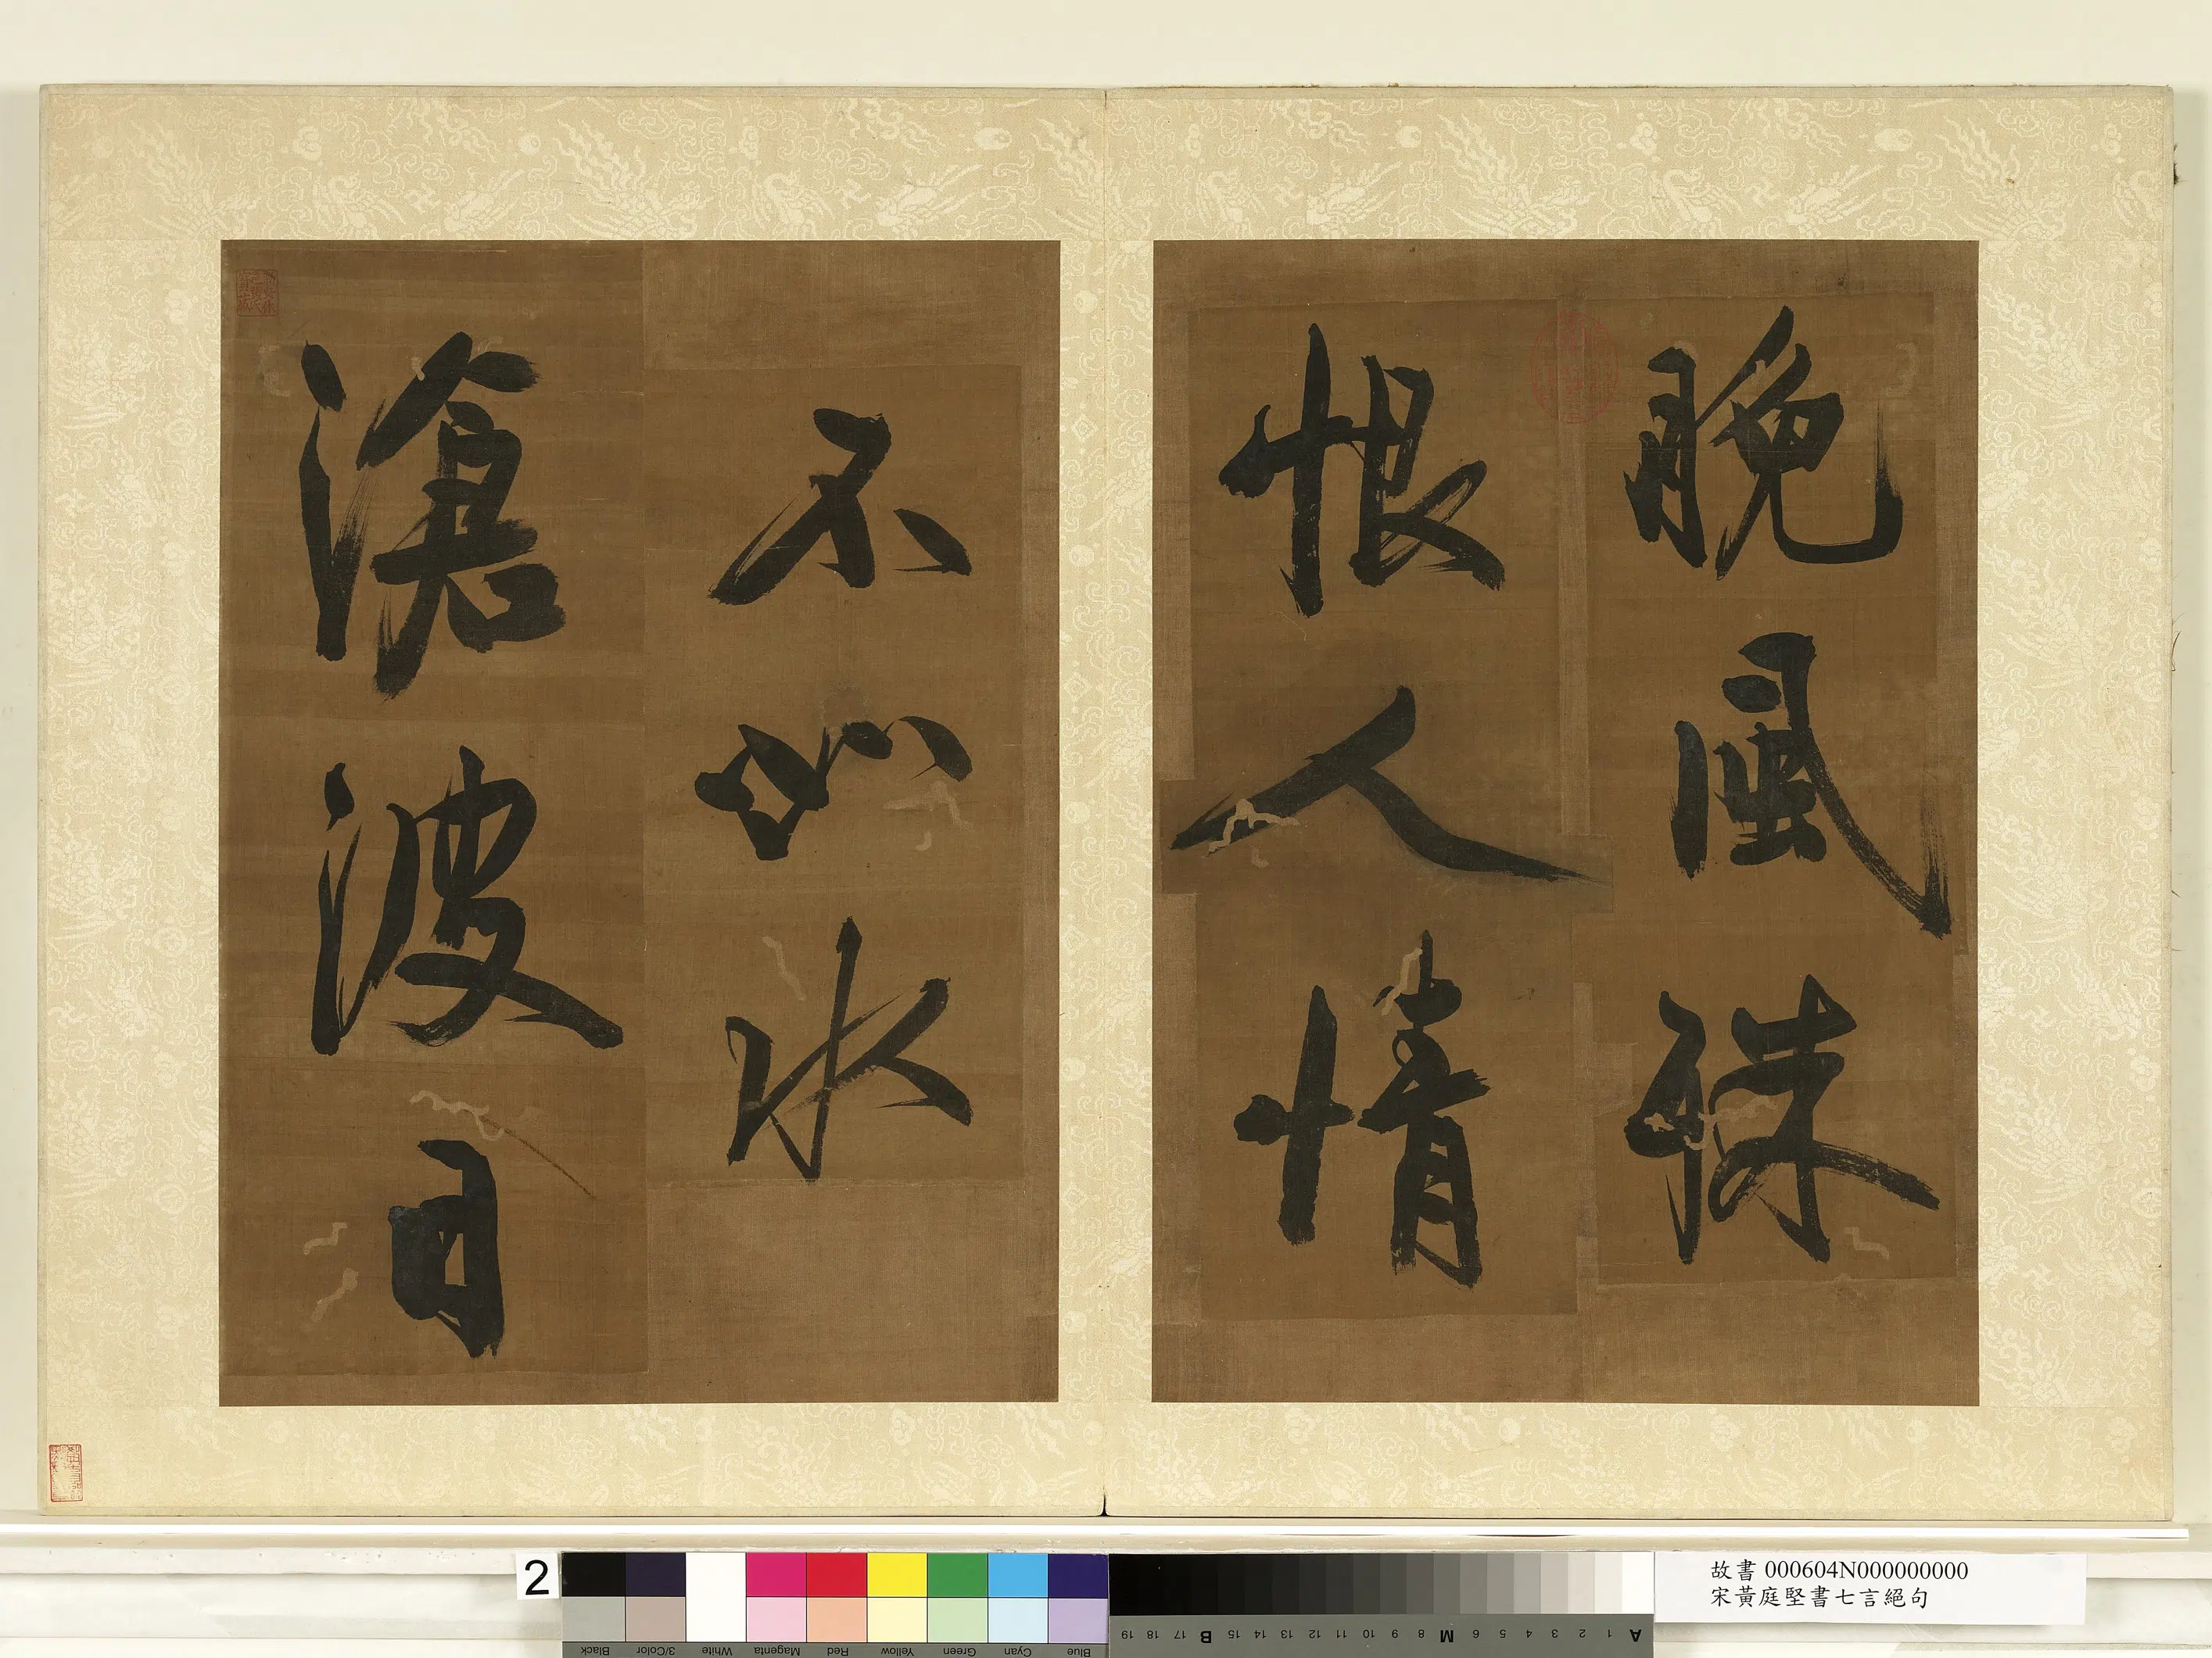 晚風殊
恨人情
不如水
滄波日
2
Black 3/Color White Magenta Red Yellow Green Cyan Blue
A 1 2 3 4 5 6 M 8 9 10 11 12 13 14 15 B 17 18 19
故書 000604N000000000
宋黃庭堅書七言絕句